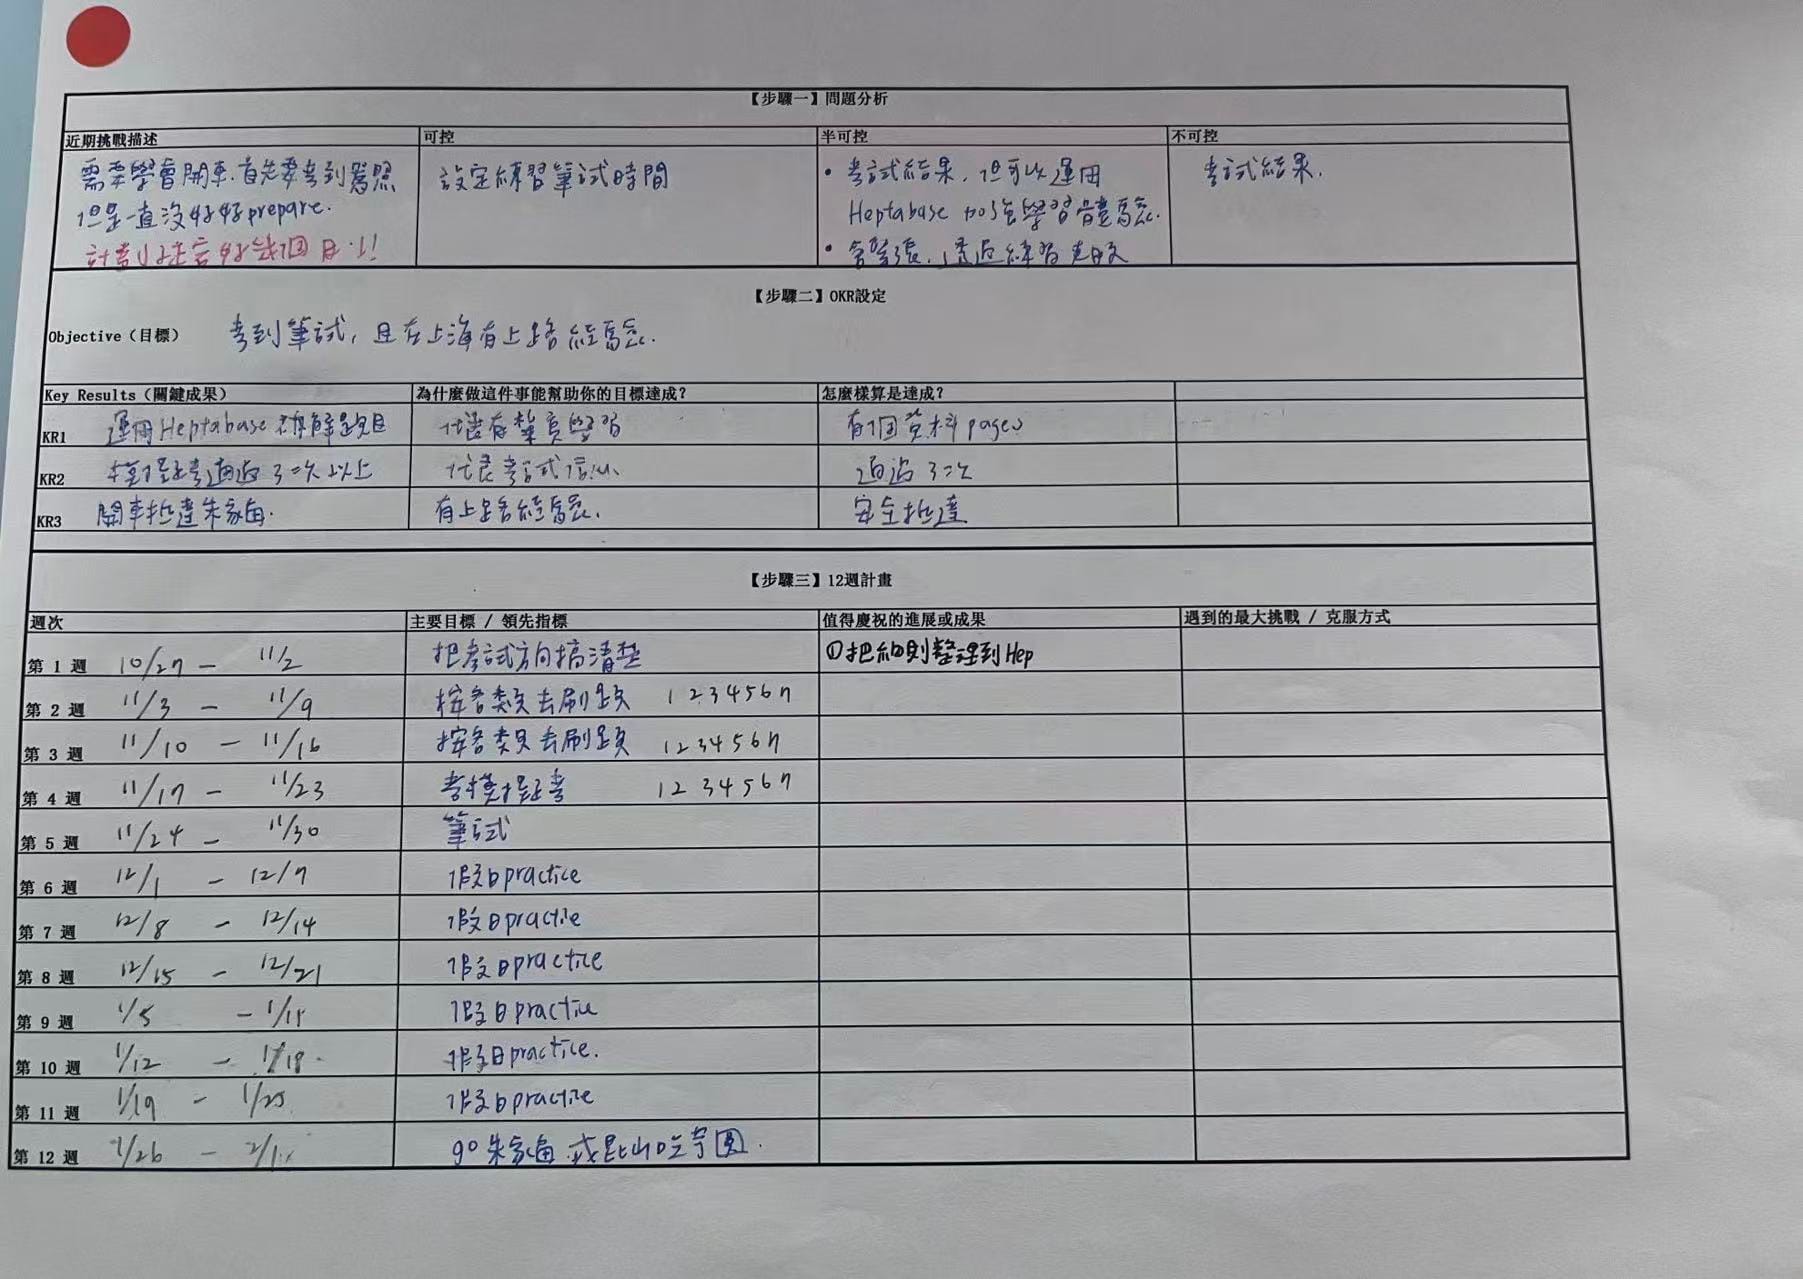 【步驟一】問題分析
近期挑戰描述 可控 半可控 不可控
需要學會開車.首先要考到駕照
但是一直沒好好prepare.
計劃拖了好幾個月!!
設定練習筆試時間
• 考試結果,但可以運用
Heptabase 加強學習體驗.
• 會緊張,透過練習克服
考試結果.
【步驟二】OKR設定
Objective（目標） 考到筆試,且在上海有上路經驗.
Key Results（關鍵成果） 為什麼做這件事能幫助你的目標達成? 怎麼樣算是達成?
KR1 運用Heptabase 拆解題目 代表有認真學習 有個資料pages
KR2 模擬考通過3次以上 代表考試信心 通過3次
KR3 開車抵達朱家角. 有上路經驗. 安全抵達
【步驟三】12週計畫
週次 主要目標 / 領先指標 值得慶祝的進展或成果 遇到的最大挑戰 / 克服方式
第 1 週 10/27 - 11/2 把考試方向搞清楚 ①把細則整理到Hep
第 2 週 11/3 - 11/9 按各類去刷題 1 2 3 4 5 6 7
第 3 週 11/10 - 11/16 按各類去刷題 1 2 3 4 5 6 7
第 4 週 11/17 - 11/23 考模擬考 1 2 3 4 5 6 7
第 5 週 11/24 - 11/30 筆試
第 6 週 12/1 - 12/7 假日practice
第 7 週 12/8 - 12/14 假日practice
第 8 週 12/15 - 12/21 假日practice
第 9 週 1/5 - 1/11 假日practice
第 10 週 1/12 - 1/18 假日practice.
第 11 週 1/19 - 1/25 假日practice
第 12 週 1/26 - 2/1 go 朱家角 或昆山吃芋圓.